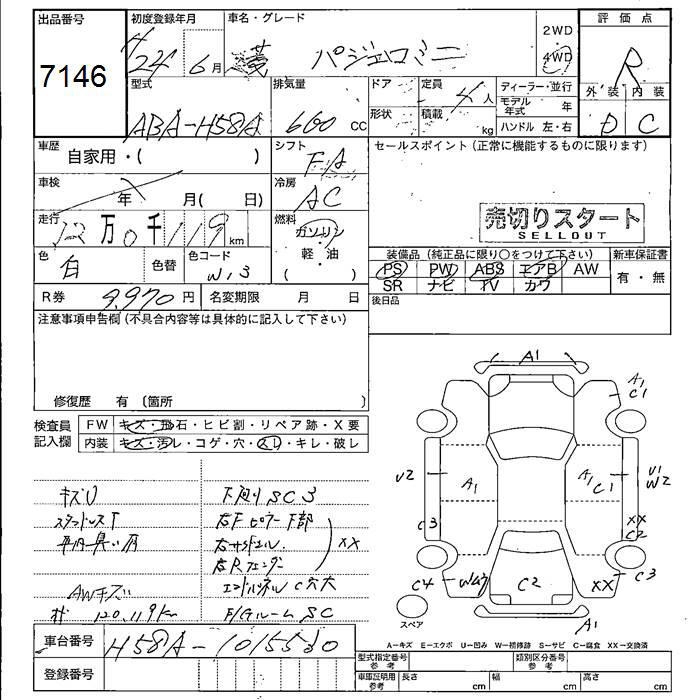 出品番号 初度登録年月 車名・グレード 評価点
7146 H24年 6月 三菱 パジェロミニ 2WD 4WD R
型式 排気量 ドア 定員 ディーラー・並行 外装 内装
ABA-H58A 660 CC 形状 4人 積載 kg モデル年式 年 ハンドル 左・右 D C
車歴 自家用・( ) シフト FA セールスポイント (正常に機能するものに限ります)
車検 年 月( 日) 冷房 AC
走行 12万0千119km 燃料 ガソリン 軽・油 ( )
売切りスタート
SELLOUT
色 白 色替 色コード W13
装備品 (純正品に限り○をつけて下さい) 新車保証書
PS PW ABS エアB AW 有・無
SR ナビ TV カワ
R券 9,970円 名変期限 月 日 後日品
注意事項申告欄 (不具合内容等は具体的に記入して下さい)
修復歴 有 (箇所
検査員記入欄 FW キズ・飛石・ヒビ割・リペア跡・X要
内装 キズ・汚レ・コゲ・穴・スレ・キレ・破レ
キズU 下廻りSC3
スタッドレスT 右Fピラー下部
右サイドシル XX
右Rフェンダー
AWキズ
120,119km F/GルームSC
A1
A1 C1
U2 A1 A1 C1 U1 W2
C3 XX C2
C4 C2 XX C3
A1
スペア
A=キズ E=エクボ U=凹み W=補修跡 S=サビ C=腐食 XX=交換済
車台番号 H58A-1015530
登録番号
型式指定番号 参考 類別区分番号 参考
車庫証明用 参考 長さ cm 幅 cm 高さ cm